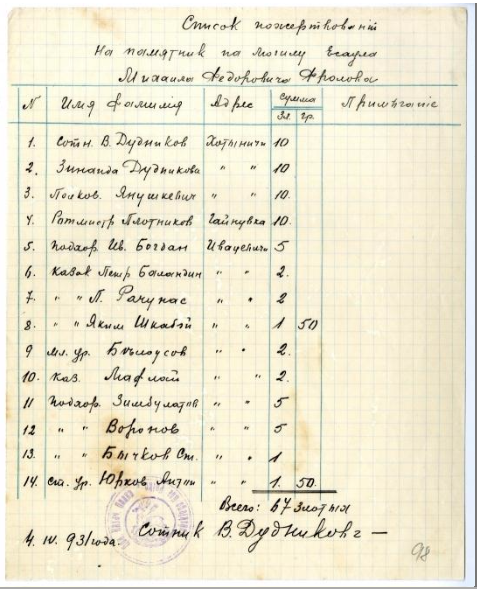 Список пожертвований
На памятник на могилу Есаула
Михаила Федоровича Фролова
N Имя Фамилія Адрес сумма Зл. гр. Примѣчаніе
1. Сотн. В. Дудников Хотыничи 10
2. Зинаида Дудникова " " 10
3. Полков. Янушкевич " " 10.
4. Ротмистр Плотников Гайнувка 10.
5. подхор. Ив. Богдан Ивацевичи 5
6. Казак Петр Баландин " " 2.
7. " " П. Рачупас " " 2
8. " " Яким Шкабій " " 1 50
9 мл. ур. Бѣлоусов " " 2.
10. Каз. " " 2.
11 подхор. " " 5
12 " " Воронов " " 5
13. " " Бычков Ст. " " 1
14. ст. ур. Юрков " " 1. 50.
Всего: 67 злотых
4. IV. 931 года. Сотник В. Дудниковъ —
98